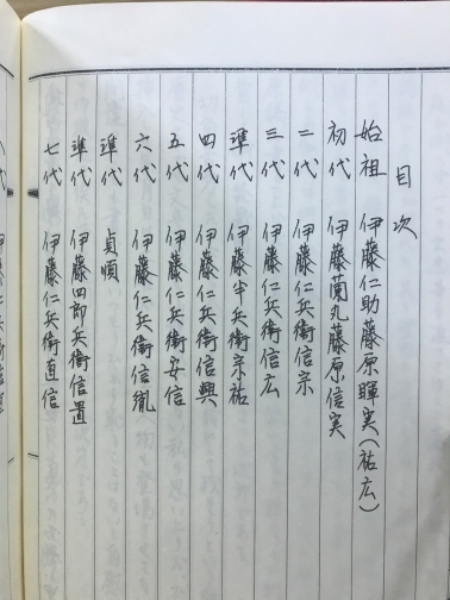 目次
始祖 伊藤仁助藤原暉実(祐広)
初代 伊藤蘭丸藤原信実
二代 伊藤仁兵衛信宗
三代 伊藤仁兵衛信広
準代 伊藤半兵衛宗祐
四代 伊藤仁兵衛信興
五代 伊藤仁兵衛安信
六代 伊藤仁兵衛信胤
準代 貞順
準代 伊藤四郎兵衛信置
七代 伊藤仁兵衛直信